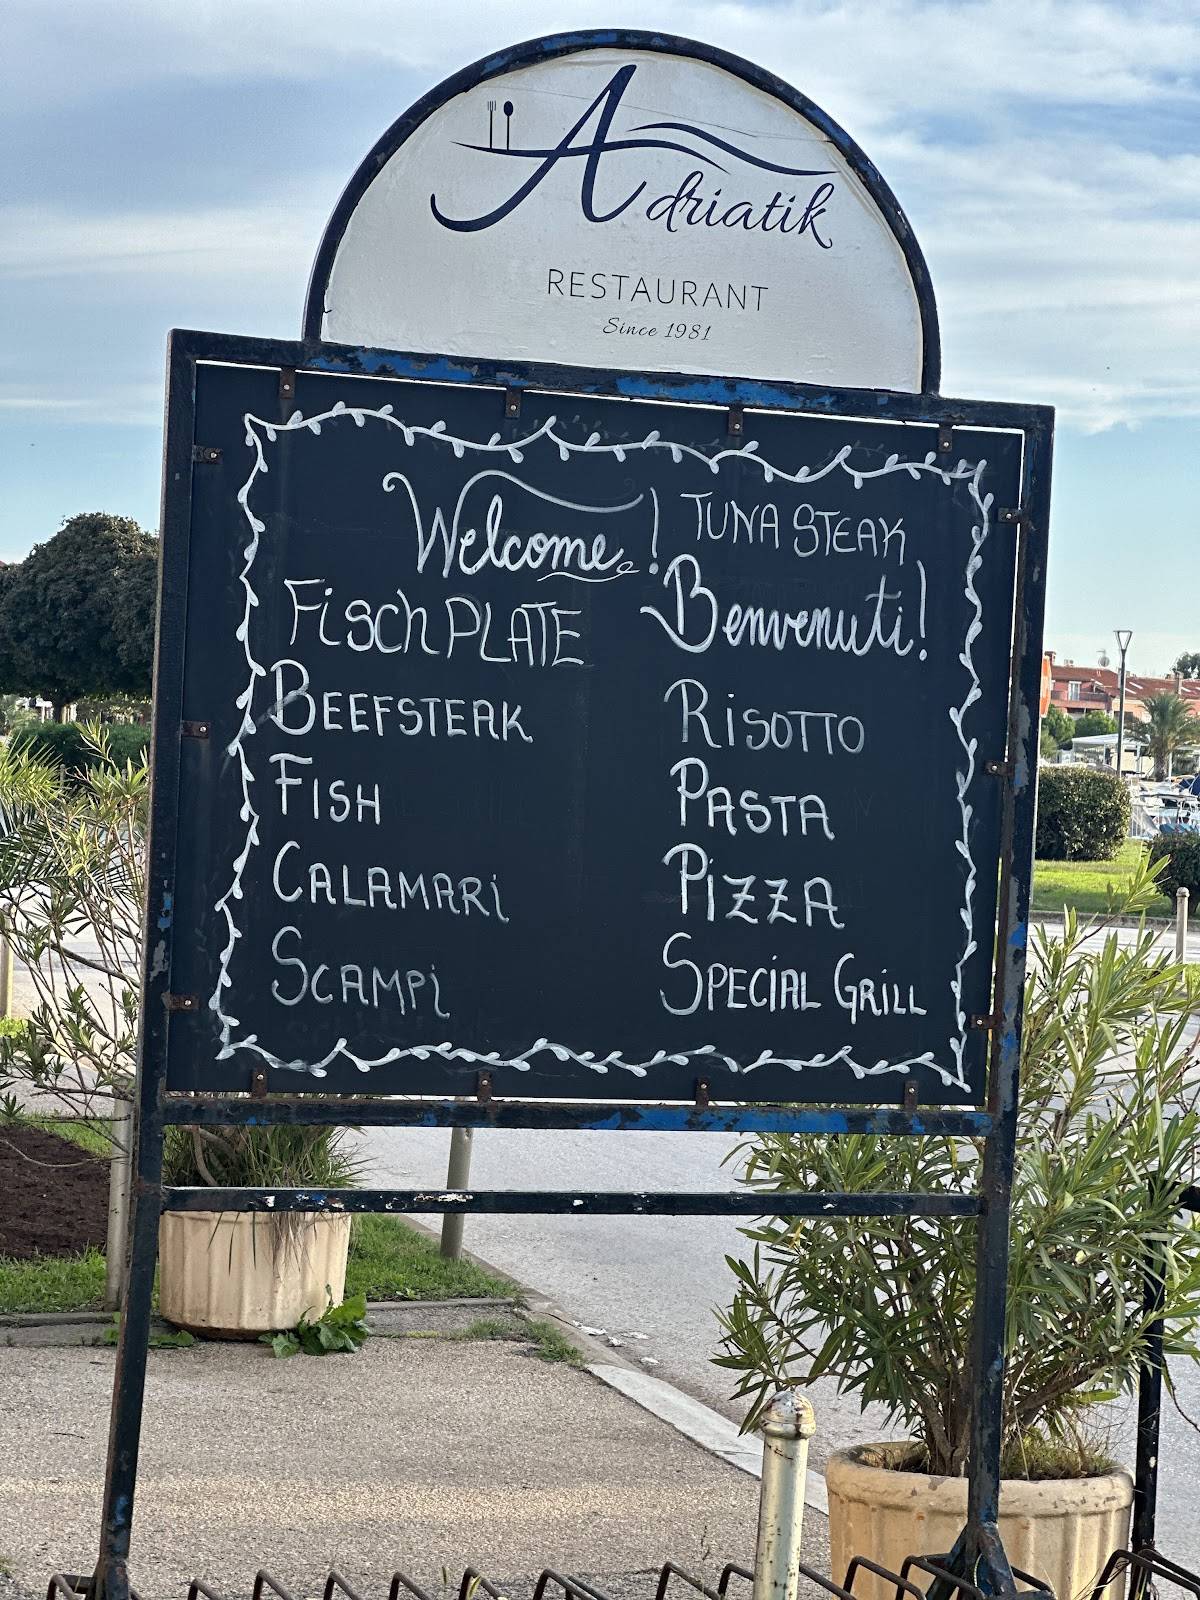 Adriatik
RESTAURANT
Since 1981
Welcome!
TUNA STEAK
FiscH PLATE
Benvenuti!
BEEFSTEAK
FiSH
CALAMARi
SCAMPi
RiSOTTO
PASTA
PiZZA
SPECiAL GRiLL